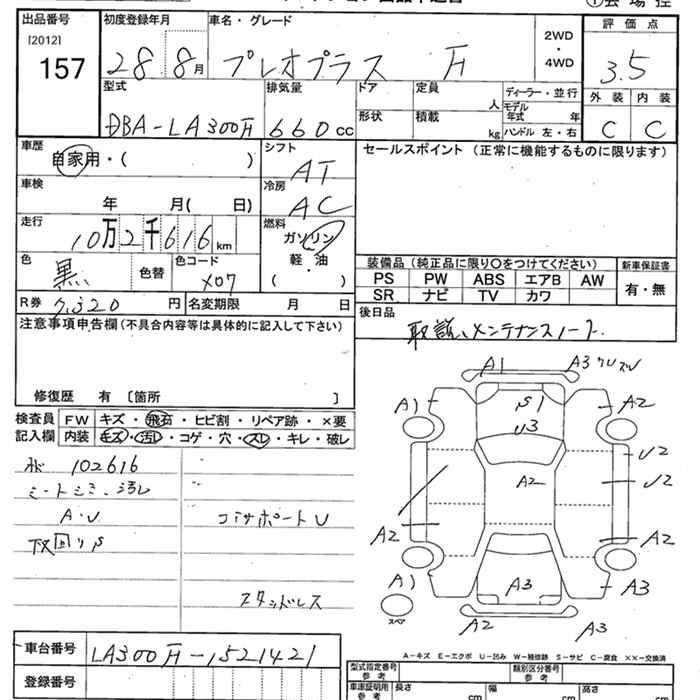 出品番号
[2012]
157
初度登録年月
28 8月
車名・グレード
プレオプラス F
2WD
・
4WD
評価点
3.5
外装 内装
C C
型式
DBA-LA300F
排気量
660cc
ドア
形状
定員
人
積載
kg
ディーラー・並行
モデル
年式 年
ハンドル 左・右
車歴
自家用・( )
シフト
AT
セールスポイント (正常に機能するものに限ります)
車検
年 月( 日)
冷房
AC
走行
10万2千616km
燃料
ガソリン
軽・油
( )
色
黒
色替
色コード
X07
装備品 (純正品に限り○をつけてください)
新車保証書
PS PW ABS エアB AW
有・無
SR ナビ TV カワ
R券 7,320円
名変期限 月 日
後日品
取説、メンテナンスノート
注意事項申告欄 (不具合内容等は具体的に記入して下さい)
修復歴 有 〔箇所 〕
検査員
記入欄
FW キズ・飛石・ヒビ割・リペア跡・×要
内装 キズ・汚レ・コゲ・穴・スレ・キレ・破レ
102616
シートシミ、汚レ
A・U
コアサポートU
下回りS
スタッドレス
A1
A3
A1
S1
U3
A2
U2
U2
A2
A2
A2
A1
A3
A3
A2
A3
スペア
車台番号 LA300F-1521421
登録番号
A-キズ E-エクボ U-凹み W-補修跡 S-サビ C-腐食 ××-完了
型式指定番号
参考
類別区分番号
参考
車庫証明用
参考
長さ cm
幅 cm
高さ cm